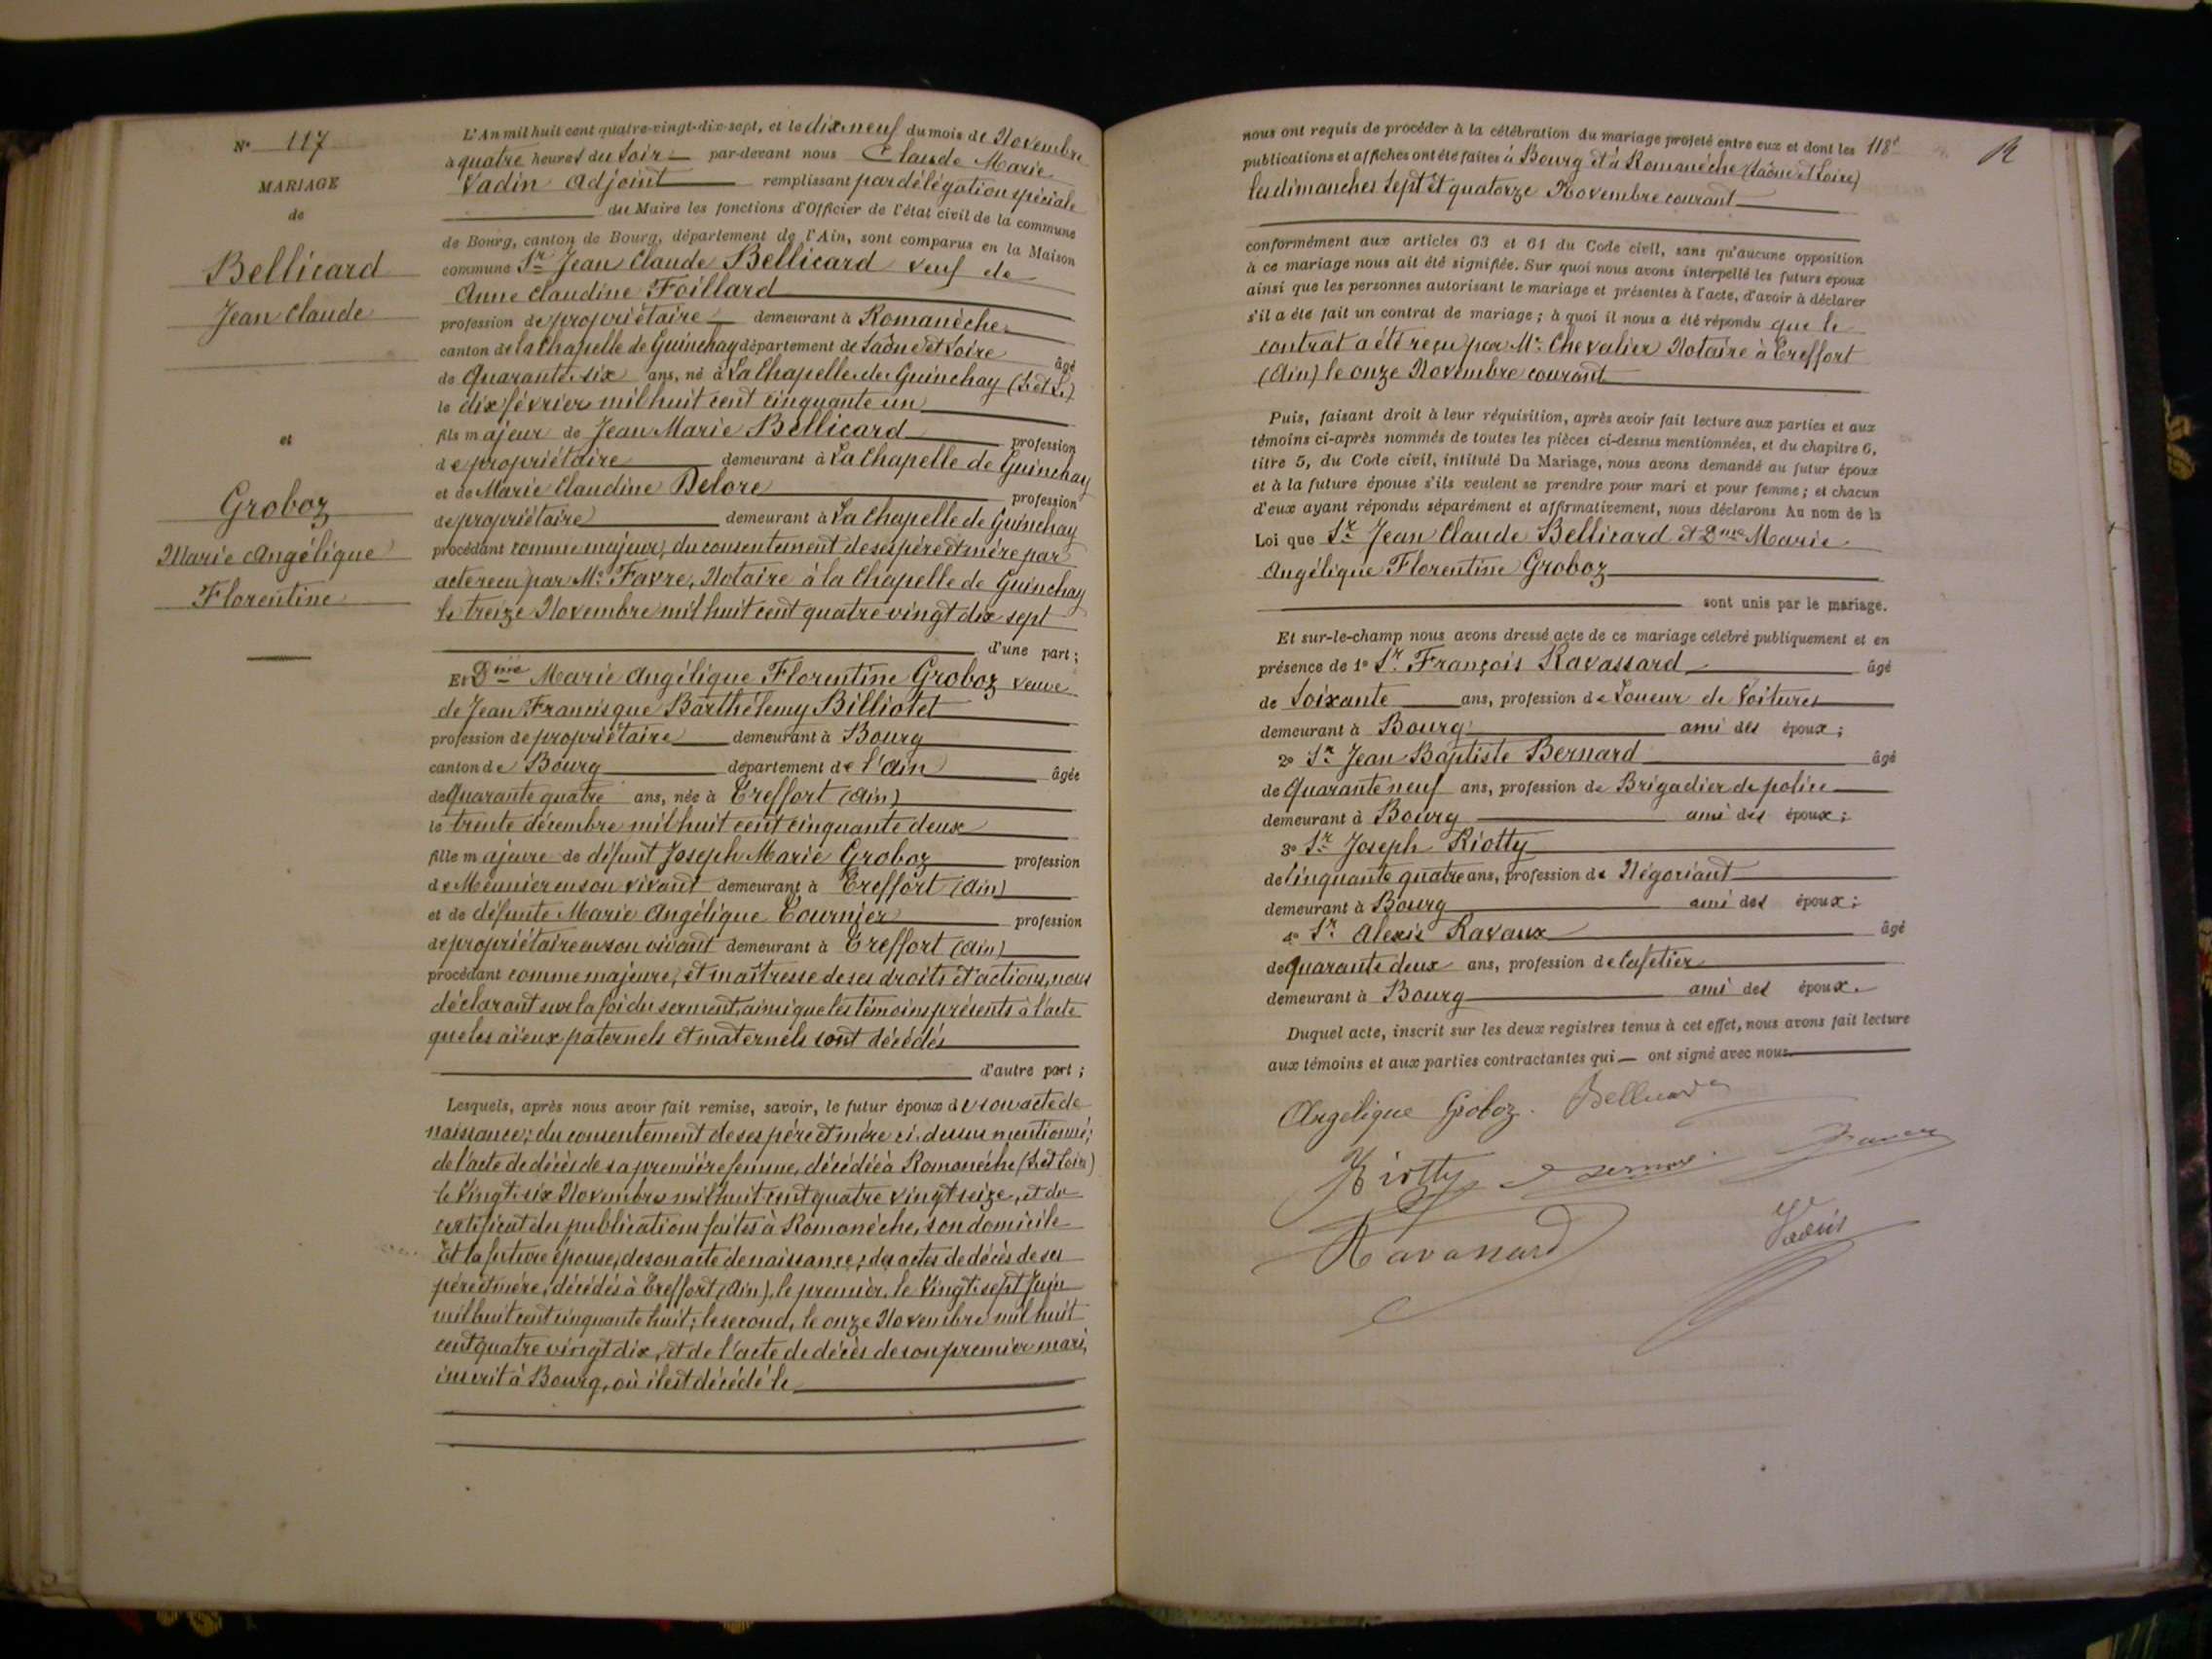 N° 117
MARIAGE
de
Bellicard
Jean Claude
et
Groboz
Marie Angélique
Florentine
L'An mil huit cent quatre-vingt-dix-sept, et le dix neuf du mois de Novembre
à quatre heures du Soir par-devant nous Claude Marie
Vadin Adjoint remplissant par délégation spéciale
du Maire les fonctions d'Officier de l'état civil de la commune
de Bourg, canton de Bourg, département de l'Ain, sont comparus en la Maison
commune Sr Jean Claude Bellicard veuf de
Anne Claudine Foillard
profession de propriétaire demeurant à Romanèche
canton de la Chapelle de Guinchay département de Saône et Loire âgé
de Quarante six ans, né à La Chapelle de Guinchay (S. et L.)
le dix février mil huit cent cinquante un
fils majeur de Jean Marie Bellicard profession
de propriétaire demeurant à La Chapelle de Guinchay
et de Marie Claudine Delore profession
de propriétaire demeurant à La Chapelle de Guinchay
procédant comme majeur, du consentement de ses père et mère par
acte reçu par Me Favre, Notaire à la Chapelle de Guinchay
le treize Novembre mil huit cent quatre vingt dix sept
d'une part ;
Et Dme Marie Angélique Florentine Groboz veuve
de Jean Francisque Barthélemy Billiotet
profession de propriétaire demeurant à Bourg
canton de Bourg département de l'Ain âgée
de Quarante quatre ans, née à Treffort (Ain)
le trente décembre mil huit cent cinquante deux
fille majeure de défunt Joseph Marie Groboz profession
de Meunier en son vivant demeurant à Treffort (Ain)
et de défunte Marie Angélique Tournier profession
de propriétaire en son vivant demeurant à Treffort (Ain)
procédant comme majeure, et maîtresse de ses droits et actions, nous
déclarant sur la foi du serment, ainsi que les témoins présents à l'acte
que les aïeux paternels et maternels sont décédés
d'autre part ;
Lesquels, après nous avoir fait remise, savoir, le futur époux de son acte de
naissance ; du consentement de ses père et mère ci-dessus mentionné ;
de l'acte de décès de sa première femme, décédée à Romanèche (S. et Loire)
le Vingt six Novembre mil huit cent quatre vingt seize, et du
certificat des publications faites à Romanèche, son domicile
Et la future épouse, de son acte de naissance ; des actes de décès de ses
père et mère, décédés à Treffort (Ain), le premier, le Vingt sept Juin
mil huit cent cinquante huit ; le second, le onze Novembre mil huit
cent quatre vingt dix, et de l'acte de décès de son premier mari,
inscrit à Bourg, où il est décédé le
nous ont requis de procéder à la célébration du mariage projeté entre eux et dont les 118
publications et affiches ont été faites à Bourg et à Romanèche (Saône et Loire)
les dimanches sept et quatorze Novembre courant
conformément aux articles 63 et 64 du Code civil, sans qu'aucune opposition
à ce mariage nous ait été signifiée. Sur quoi nous avons interpellé les futurs époux
ainsi que les personnes autorisant le mariage et présentes à l'acte, d'avoir à déclarer
s'il a été fait un contrat de mariage ; à quoi il nous a été répondu que le
contrat a été reçu par Me Chevalier Notaire à Treffort
(Ain) le onze Novembre courant
Puis, faisant droit à leur réquisition, après avoir fait lecture aux parties et aux
témoins ci-après nommés de toutes les pièces ci-dessus mentionnées, et du chapitre 6,
titre 5, du Code civil, intitulé Du Mariage, nous avons demandé au futur époux
et à la future épouse s'ils veulent se prendre pour mari et pour femme ; et chacun
d'eux ayant répondu séparément et affirmativement, nous déclarons Au nom de la
Loi que Sr Jean Claude Bellicard et Dme Marie
Angélique Florentine Groboz
sont unis par le mariage.
Et sur-le-champ nous avons dressé acte de ce mariage célébré publiquement et en
présence de 1° Sr François Ravassard âgé
de Soixante ans, profession de Loueur de Voitures
demeurant à Bourg ami des époux ;
2° Sr Jean Baptiste Bernard âgé
de Quarante neuf ans, profession de Brigadier de police
demeurant à Bourg ami des époux ;
3° Sr Joseph Riotty
de Cinquante quatre ans, profession de Négociant
demeurant à Bourg ami des époux ;
4° Sr Alexis Ravaux âgé
de Quarante deux ans, profession de Cafetier
demeurant à Bourg ami des époux.
Duquel acte, inscrit sur les deux registres tenus à cet effet, nous avons fait lecture
aux témoins et aux parties contractantes qui ont signé avec nous.
Angelique Groboz. Bellicard
Riotty Bernard
Ravassard Vadin